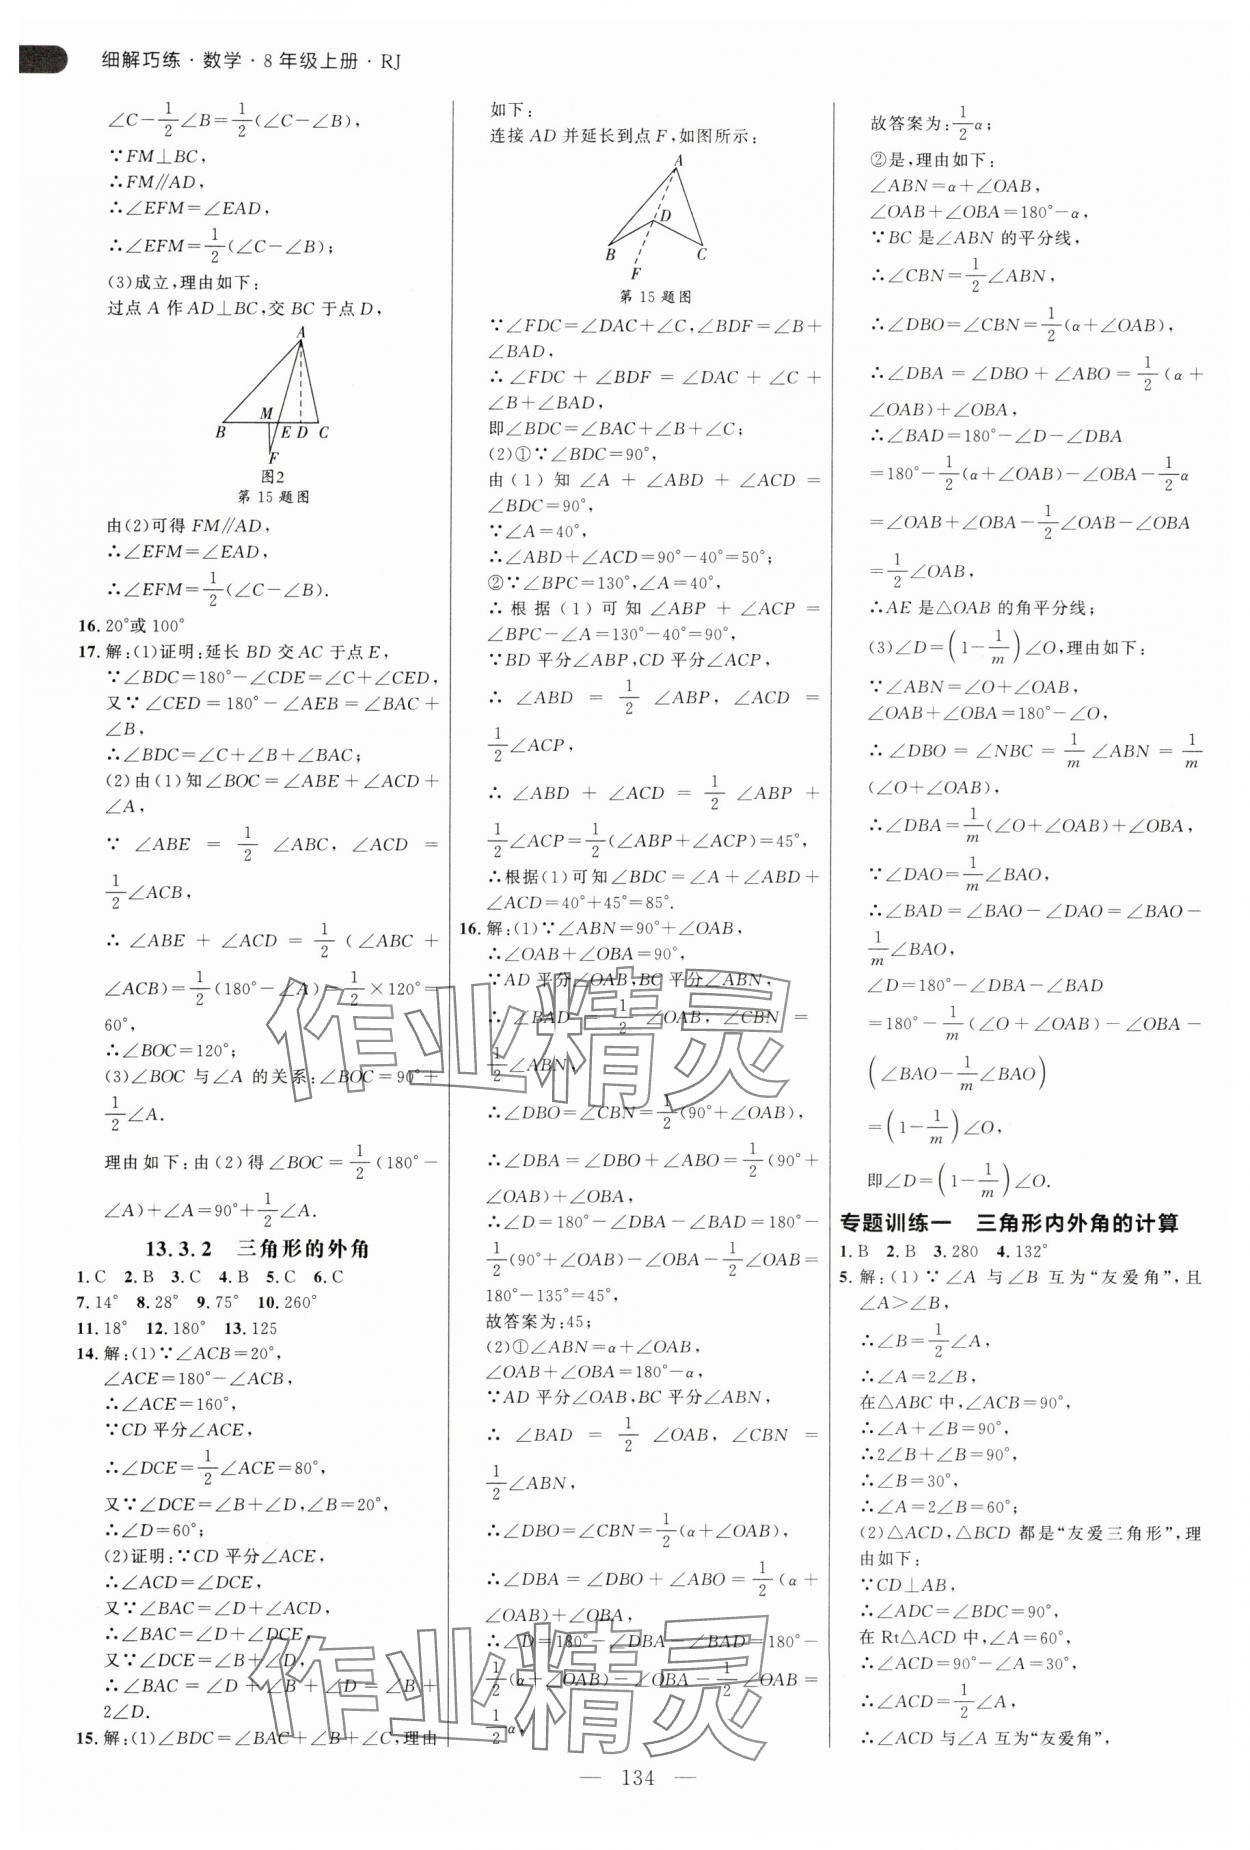 细解巧练·数学·8年级上册·RJ
∠C-1/2∠B=1/2(∠C-∠B),
∵FM⊥BC,
∴FM∥AD,
∴∠EFM=∠EAD,
∴∠EFM=1/2(∠C-∠B);
(3)成立,理由如下:
过点A作AD⊥BC,交BC于点D,
A
M
B E D C
F
图2
第15题图
由(2)可得FM∥AD,
∴∠EFM=∠EAD,
∴∠EFM=1/2(∠C-∠B).
16.20°或100°
17.解:(1)证明:延长BD交AC于点E,
∵∠BDC=180°-∠CDE=∠C+∠CED,
又∵∠CED=180°-∠AEB=∠BAC+
∠B,
∴∠BDC=∠C+∠B+∠BAC;
(2)由(1)知∠BOC=∠ABE+∠ACD+
∠A,
∵∠ABE=1/2∠ABC,∠ACD=
1/2∠ACB,
∴∠ABE+∠ACD=1/2(∠ABC+
∠ACB)=1/2(180°-∠A)=1/2×120°=
60°,
∴∠BOC=120°;
(3)∠BOC与∠A的关系:∠BOC=90°+
1/2∠A.
理由如下:由(2)得∠BOC=1/2(180°-
∠A)+∠A=90°+1/2∠A.
13.3.2 三角形的外角
1.C 2.B 3.C 4.B 5.C 6.C
7.14° 8.28° 9.75° 10.260°
11.18° 12.180° 13.125
14.解:(1)∵∠ACB=20°,
∠ACE=180°-∠ACB,
∴∠ACE=160°,
∵CD平分∠ACE,
∴∠DCE=1/2∠ACE=80°,
又∵∠DCE=∠B+∠D,∠B=20°,
∴∠D=60°;
(2)证明:∵CD平分∠ACE,
∴∠ACD=∠DCE,
又∵∠BAC=∠D+∠ACD,
∴∠BAC=∠D+∠DCE,
又∵∠DCE=∠B+∠D,
∴∠BAC=∠D+∠B+∠D=∠B+
2∠D.
15.解:(1)∠BDC=∠BAC+∠B+∠C,理由
如下:
连接AD并延长到点F,如图所示:
A
D
B C
F
第15题图
∵∠FDC=∠DAC+∠C,∠BDF=∠B+
∠BAD,
∴∠FDC+∠BDF=∠DAC+∠C+
∠B+∠BAD,
即∠BDC=∠BAC+∠B+∠C;
(2)①∵∠BDC=90°,
由(1)知∠A+∠ABD+∠ACD=
∠BDC=90°,
∵∠A=40°,
∴∠ABD+∠ACD=90°-40°=50°;
②∵∠BPC=130°,∠A=40°,
∴根据(1)可知∠ABP+∠ACP=
∠BPC-∠A=130°-40°=90°,
∵BD平分∠ABP,CD平分∠ACP,
∴∠ABD=1/2∠ABP,∠ACD=
1/2∠ACP,
∴∠ABD+∠ACD=1/2∠ABP+
1/2∠ACP=1/2(∠ABP+∠ACP)=45°,
∴根据(1)可知∠BDC=∠A+∠ABD+
∠ACD=40°+45°=85°.
16.解:(1)∵∠ABN=90°+∠OAB,
∴∠OAB+∠OBA=90°,
∵AD平分∠OAB,BC平分∠ABN,
∴∠BAD=1/2∠OAB,∠CBN=
1/2∠ABN,
∴∠DBO=∠CBN=1/2(90°+∠OAB),
∴∠DBA=∠DBO+∠ABO=1/2(90°+
∠OAB)+∠OBA,
∴∠D=180°-∠DBA-∠BAD=180°-
1/2(90°+∠OAB)-∠OBA-1/2∠OAB=
180°-135°=45°,
故答案为:45;
(2)①∠ABN=α+∠OAB,
∠OAB+∠OBA=180°-α,
∵AD平分∠OAB,BC平分∠ABN,
∴∠BAD=1/2∠OAB,∠CBN=
1/2∠ABN,
∴∠DBO=∠CBN=1/2(α+∠OAB),
∴∠DBA=∠DBO+∠ABO=1/2(α+
∠OAB)+∠OBA,
∴∠D=180°-∠DBA-∠BAD=180°-
1/2(α+∠OAB)-∠OBA-1/2∠OAB=
1/2α,
故答案为:1/2α;
②是,理由如下:
∠ABN=α+∠OAB,
∠OAB+∠OBA=180°-α,
∵BC是∠ABN的平分线,
∴∠CBN=1/2∠ABN,
∴∠DBO=∠CBN=1/2(α+∠OAB),
∴∠DBA=∠DBO+∠ABO=1/2(α+
∠OAB)+∠OBA,
∴∠BAD=180°-∠D-∠DBA
=180°-1/2(α+∠OAB)-∠OBA-1/2α
=∠OAB+∠OBA-1/2∠OAB-∠OBA
=1/2∠OAB,
∴AE是△OAB的角平分线;
(3)∠D=(1-1/m)∠O,理由如下:
∵∠ABN=∠O+∠OAB,
∠OAB+∠OBA=180°-∠O,
∴∠DBO=∠NBC=1/m∠ABN=1/m
(∠O+∠OAB),
∴∠DBA=1/m(∠O+∠OAB)+∠OBA,
∵∠DAO=1/m∠BAO,
∴∠BAD=∠BAO-∠DAO=∠BAO-
1/m∠BAO,
∠D=180°-∠DBA-∠BAD
=180°-1/m(∠O+∠OAB)-∠OBA-
(∠BAO-1/m∠BAO)
=(1-1/m)∠O,
即∠D=(1-1/m)∠O.
专题训练一 三角形内外角的计算
1.B 2.B 3.280 4.132°
5.解:(1)∵∠A与∠B互为“友爱角”,且
∠A>∠B,
∴∠B=1/2∠A,
∴∠A=2∠B,
在△ABC中,∠ACB=90°,
∴∠A+∠B=90°,
∴2∠B+∠B=90°,
∴∠B=30°,
∴∠A=2∠B=60°;
(2)△ACD,△BCD都是“友爱三角形”,理
由如下:
∵CD⊥AB,
∴∠ADC=∠BDC=90°,
在Rt△ACD中,∠A=60°,
∴∠ACD=90°-∠A=30°,
∴∠ACD=1/2∠A,
∴∠ACD与∠A互为“友爱角”,
作业精灵
作业精灵
— 134 —